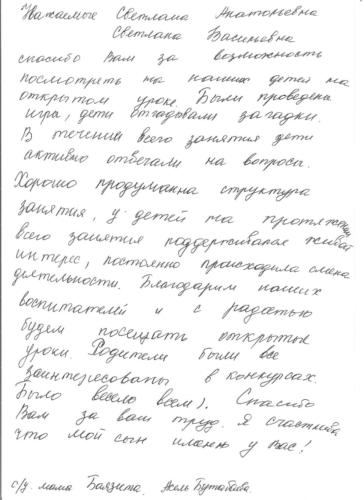 Уважаемые Светлана Анатольевна
Светлана Васильевна
спасибо Вам за возможность
посмотреть на наших детей на
открытом уроке. Были проведена
игра, дети отгадывали загадки.
В течении всего занятия дети
активно отвечали на вопросы.
Хорошо продуманна структура
занятия, у детей на протяжении
всего занятия поддерживался живой
интерес, постоянно происходила смена
деятельности. Благодарим наших
воспитателей и с радостью
будем посещать открытые
уроки. Родители были все
заинтересованы в конкурсах.
Было весело всем). Спасибо
Вам за ваш труд. Я счастлива
что мой сын именно у вас!
с/у. мама